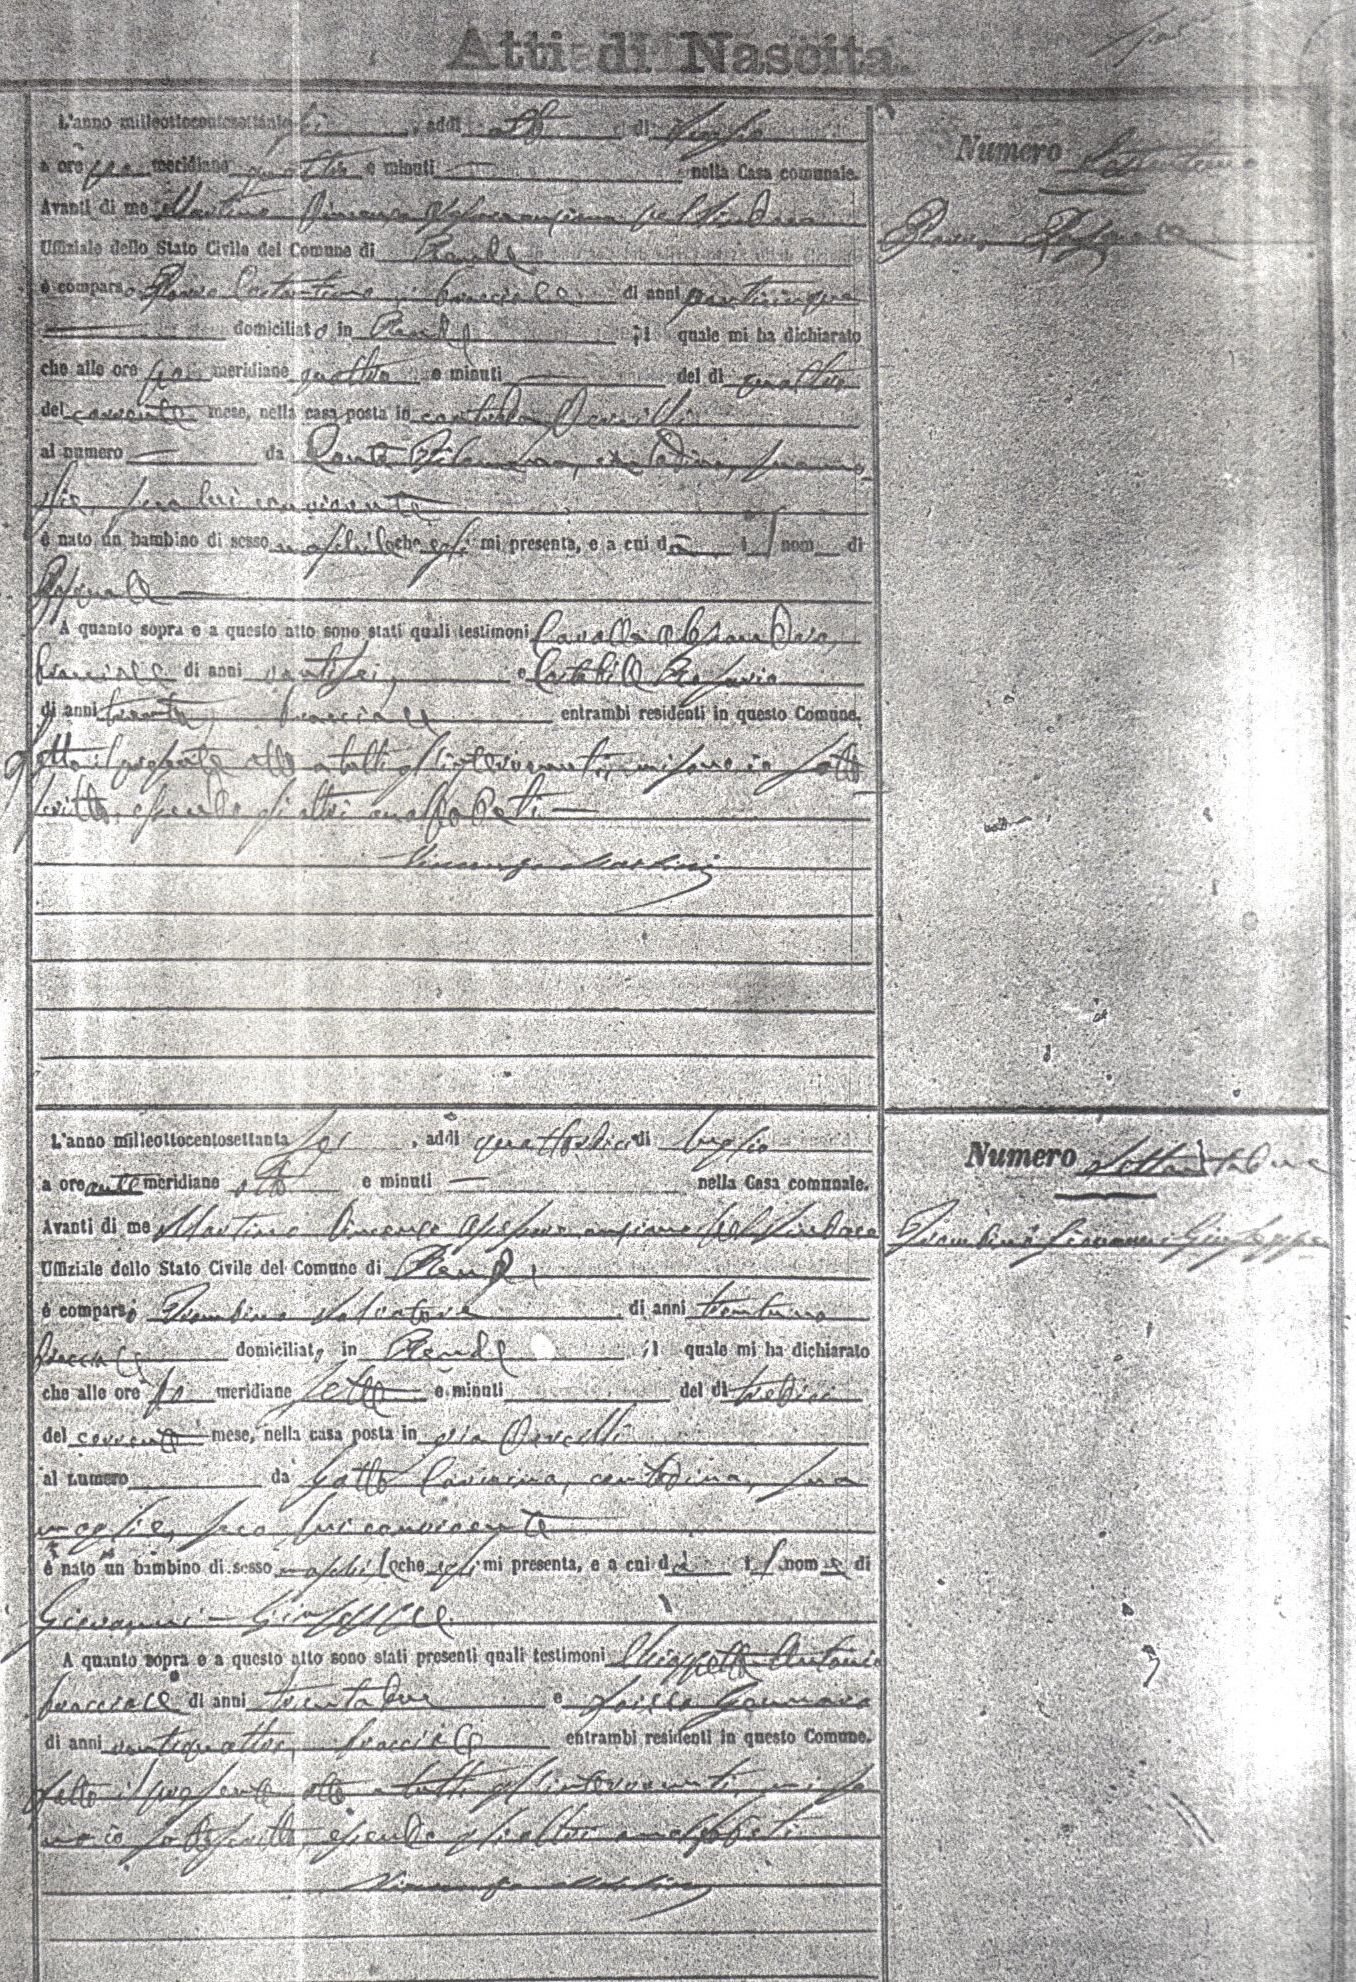 Atti di Nascita.
L'anno milleottocentosettanta sei, addì otto di luglio
a ore meridiane quattro e minuti — nella Casa comunale.
Avanti di me Martino Vincenzo Assessore anziano pel Sindaco
Uffiziale dello Stato Civile del Comune di Rende
è comparso Costantino bracciale di anni venticinque
domiciliato in Rende, il quale mi ha dichiarato
che alle ore meridiane quattro e minuti — del dì quattro
del corrente mese, nella casa posta in
al numero — da Conte Filomena, contadina, sua mo
glie, seco lui convivente
è nato un bambino di sesso maschile che egli mi presenta, e a cui dà il nom di
Raffaele —
A quanto sopra e a questo atto sono stati quali testimoni
bracciale di anni ventisei, e
di anni trenta, bracciale entrambi residenti in questo Comune.
Letto il presente atto a tutti gl'intervenuti, mi sono io sotto
scritto, essendo gli altri analfabeti —
Vincenzo Martini
Numero Settantuno
Raffaele
L'anno milleottocentosettanta sei, addì quattordici di luglio
a ore ante meridiane otto e minuti — nella Casa comunale.
Avanti di me Martino Vincenzo Assessore anziano pel Sindaco
Uffiziale dello Stato Civile del Comune di Rende,
è comparso Salvatore di anni trentuno
bracciale domiciliato in Rende, il quale mi ha dichiarato
che alle ore meridiane sette e minuti del dì tredici
del corrente mese, nella casa posta in via
al numero da Gatto contadina, sua
moglie, seco lui convivente
è nato un bambino di sesso maschile che egli mi presenta, e a cui dà il nome di
Giovanni - Giuseppe
A quanto sopra e a questo atto sono stati presenti quali testimoni Chiappetta Antonio
bracciale di anni trentadue e Gennaro
di anni ventiquattro, bracciale entrambi residenti in questo Comune.
Letto il presente atto a tutti gl'intervenuti, mi so
no io sottoscritto, essendo gli altri analfabeti
Vincenzo Martini
Numero Settantadue
Giovanni Giuseppe